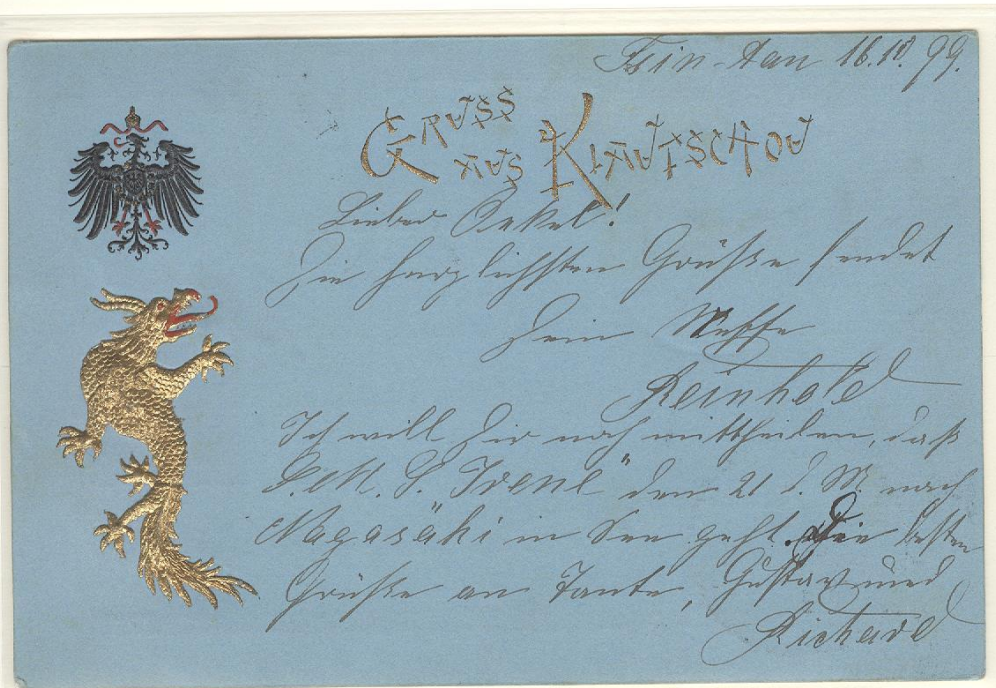 Tsin-tau 16.10.99.
GRUSS
AUS KIAUTSCHOU
Lieber Onkel!
Die herzlichsten Grüße sendet
Dein Neffe
Reinhold
Ich will Dir noch mittheilen, daß
S.M.S. "Irene" den 21 d. M. nach
Nagasäki in See geht. Die besten
Grüße an Tante, Gustav und
Richard